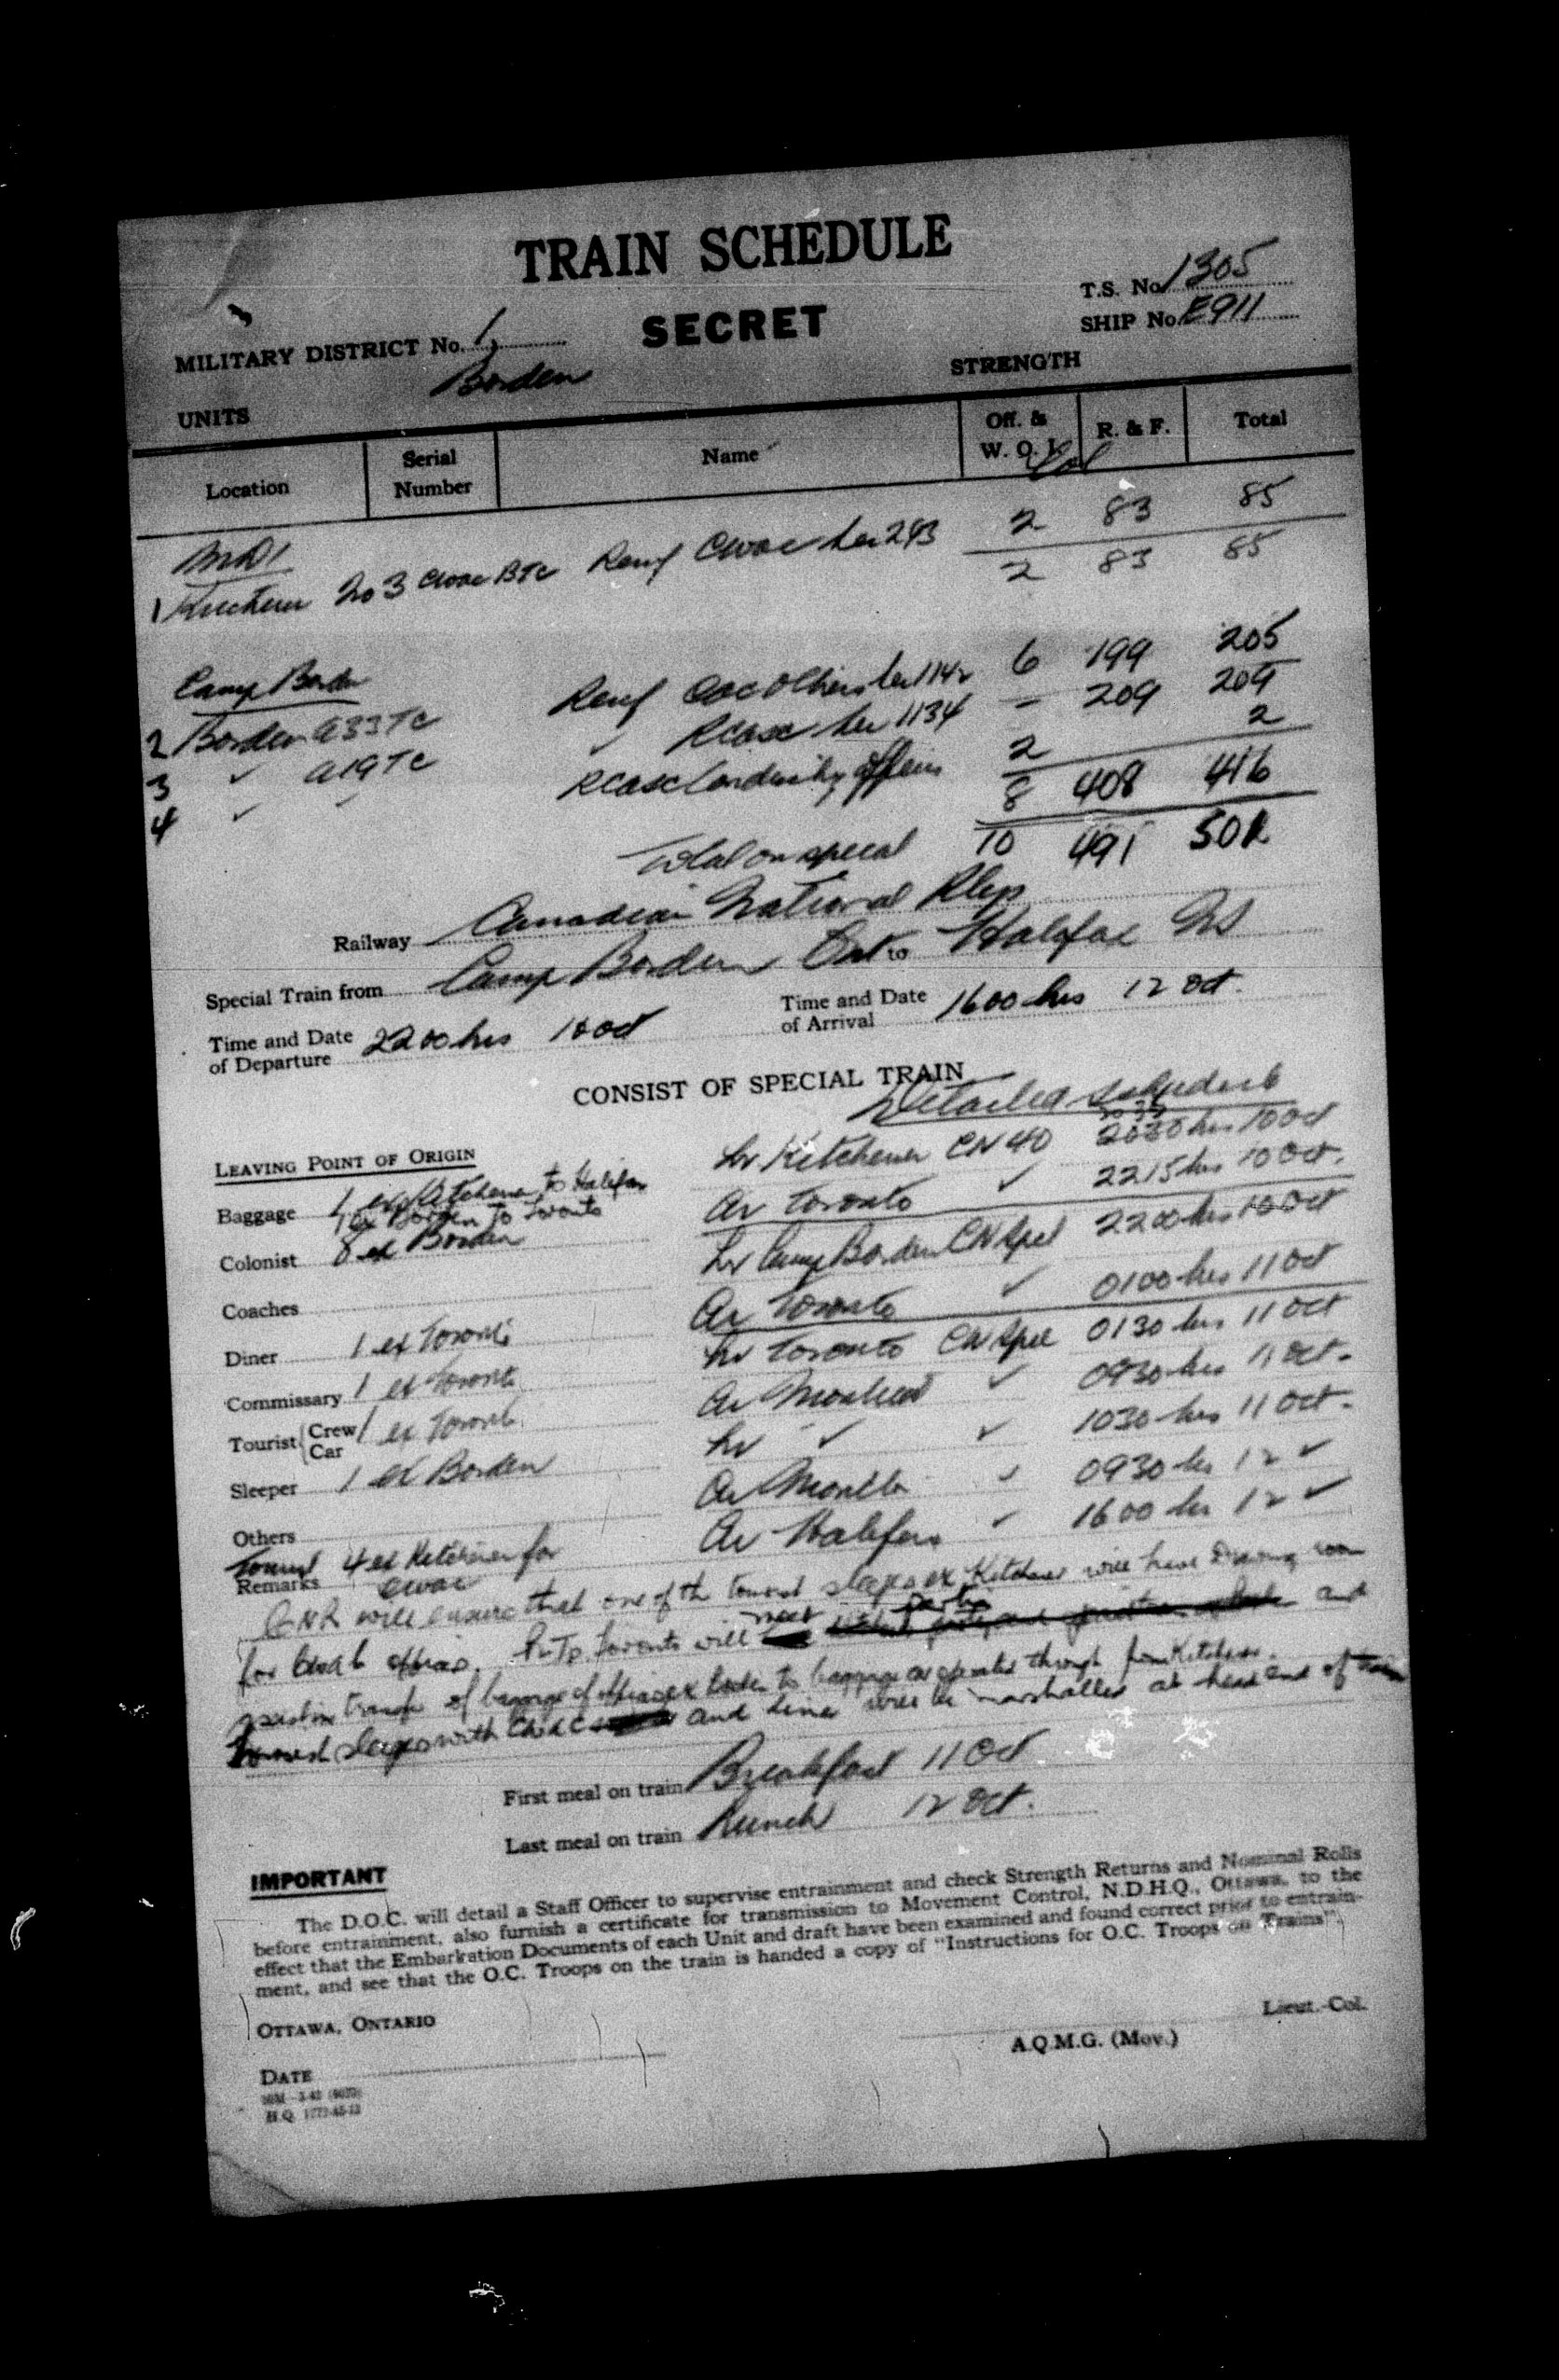 TRAIN SCHEDULE
SECRET
T.S. No. 1305
SHIP No. E911
MILITARY DISTRICT No. 1,
Borden
STRENGTH
UNITS
Location Serial Number Name Off. & W. O. I. R. & F. Total
MD1
1 Kitchener No 3 CWAC BTC Reinf CWAC Ser 293 2 83 85
2 83 85
Camp Borden
2 Borden A33TC Reinf 1142 6 199 205
3 ✓ A19TC ✓ RCASC Ser 1134 – 209 209
4 ✓ ✓ RCASC officers 2 2
8 408 416
Total on special 10 491 501
Railway Canadian National Rlys
Special Train from Camp Borden Ont to Halifax NS
Time and Date of Departure 2200 hrs 10 Oct
Time and Date of Arrival 1600 hrs 12 Oct.
CONSIST OF SPECIAL TRAIN
Detailed Schedule
LEAVING POINT OF ORIGIN
Lv Kitchener CN 40 2030 hrs 10 Oct
Baggage 1 ex Kitchener to Halifax
1 ex Borden to Toronto
Ar Toronto ✓ 2215 hrs 10 Oct.
Colonist 8 ex Borden
Lv Camp Borden CN Spel 2200 hrs 10 Oct
Coaches
Ar Toronto ✓ 0100 hrs 11 Oct
Diner 1 ex Toronto
Lv Toronto CN Spel 0130 hrs 11 Oct
Commissary 1 ex Toronto
Ar Montreal ✓ 0930 hrs 11 Oct.
Tourist { Crew Car 1 ex Toronto
Lv ✓ ✓ 1030 hrs 11 Oct.
Sleeper 1 ex Borden
Ar Monctn ✓ 0930 hrs 12 ✓
Others
Ar Halifax ✓ 1600 hrs 12 ✓
Tourist 4 ex Kitchener for
CWAC
Remarks
CNR will ensure that one of the tourist sleepers ex Kitchener will have Drawing room
for CWAC officers. Toronto will meet parties and
transfer of baggage of officers ex Borden to baggage car operated through from Kitchener.
Tourist sleepers with CWAC and diner will be marshalled at head end of train
First meal on train Breakfast 11 Oct
Last meal on train Lunch 12 Oct.
IMPORTANT
The D.O.C. will detail a Staff Officer to supervise entrainment and check Strength Returns and Nominal Rolls
before entrainment, also furnish a certificate for transmission to Movement Control, N.D.H.Q., Ottawa, to the
effect that the Embarkation Documents of each Unit and draft have been examined and found correct prior to entrain-
ment, and see that the O.C. Troops on the train is handed a copy of "Instructions for O.C. Troops on Trains".
OTTAWA, ONTARIO
Lieut.-Col.
A.Q.M.G. (Mov.)
DATE
H.Q. 1772-45-13